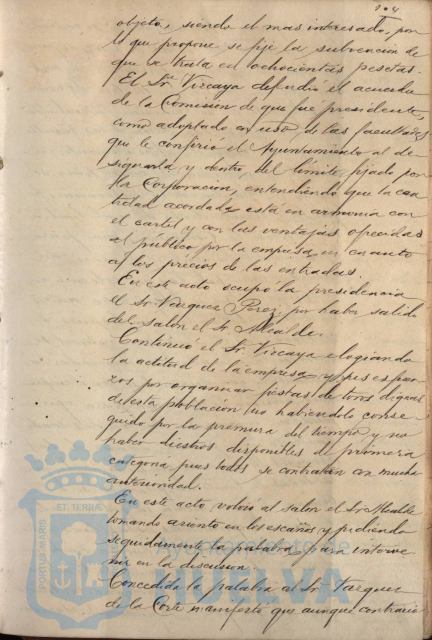 104
objeto, siendo el mas interesado, por
lo que propone se fije la subvencion de
que se trata en ochocientas pesetas.
El Sr. Vizcaya defendio el acuerdo
de la Comision de que fué presidente,
como adoptado en uso de las facultades
que le confirió el Ayuntamiento al de
signarla y dentro del límite fijado por
la Corporacion, entendiendo que la can
tidad acordada está en armonia con
el cartel y con las ventajas ofrecidas
al público por la empresa en cuanto
a los precios de las entradas.
En este acto ocupó la presidencia
el Sr. Vazquez Perez por haber salido
del salon el Sr. Alcalde.
Continuó el Sr. Vizcaya elogiando
la actitud de la empresa y sus esfuer
zos por organizar fiestas de toros dignas
de esta poblacion no habiendolo conse
guido por la premura del tiempo y no
haber diestros disponibles de primera
categoria pues todos se contratan con mucha
anterioridad.
En este acto volvió al salon el Sr. Alcalde
tomando asiento en los escaños y pidiendo
seguidamente la palabra para interve
nir en la discusion.
Concedida la palabra al Sr. Vazquez
de la Corte manifestó que aunque contrario
PORTUS MARIS ET TERRÆ
HUELVA